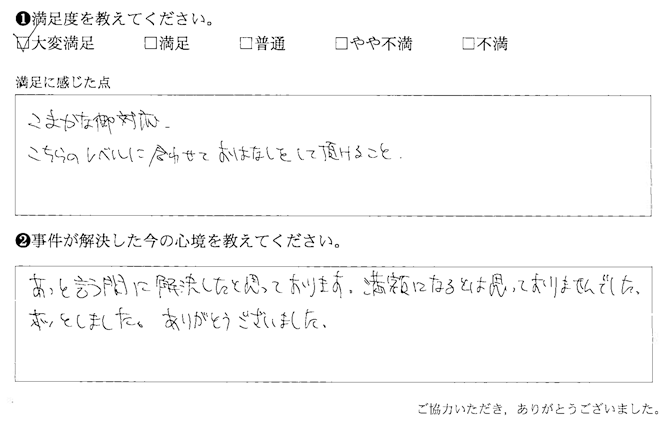 ❶満足度を教えてください。
☑大変満足 □満足 □普通 □やや不満 □不満
満足に感じた点
こまかな御対応.
こちらのレベルに合わせておはなしをして頂けること.
❷事件が解決した今の心境を教えてください。
あっと言う間に解決したと思っております。満額になるとは思っておりませんでした。
ホッとしました。ありがとうございました。
ご協力いただき，ありがとうございました。